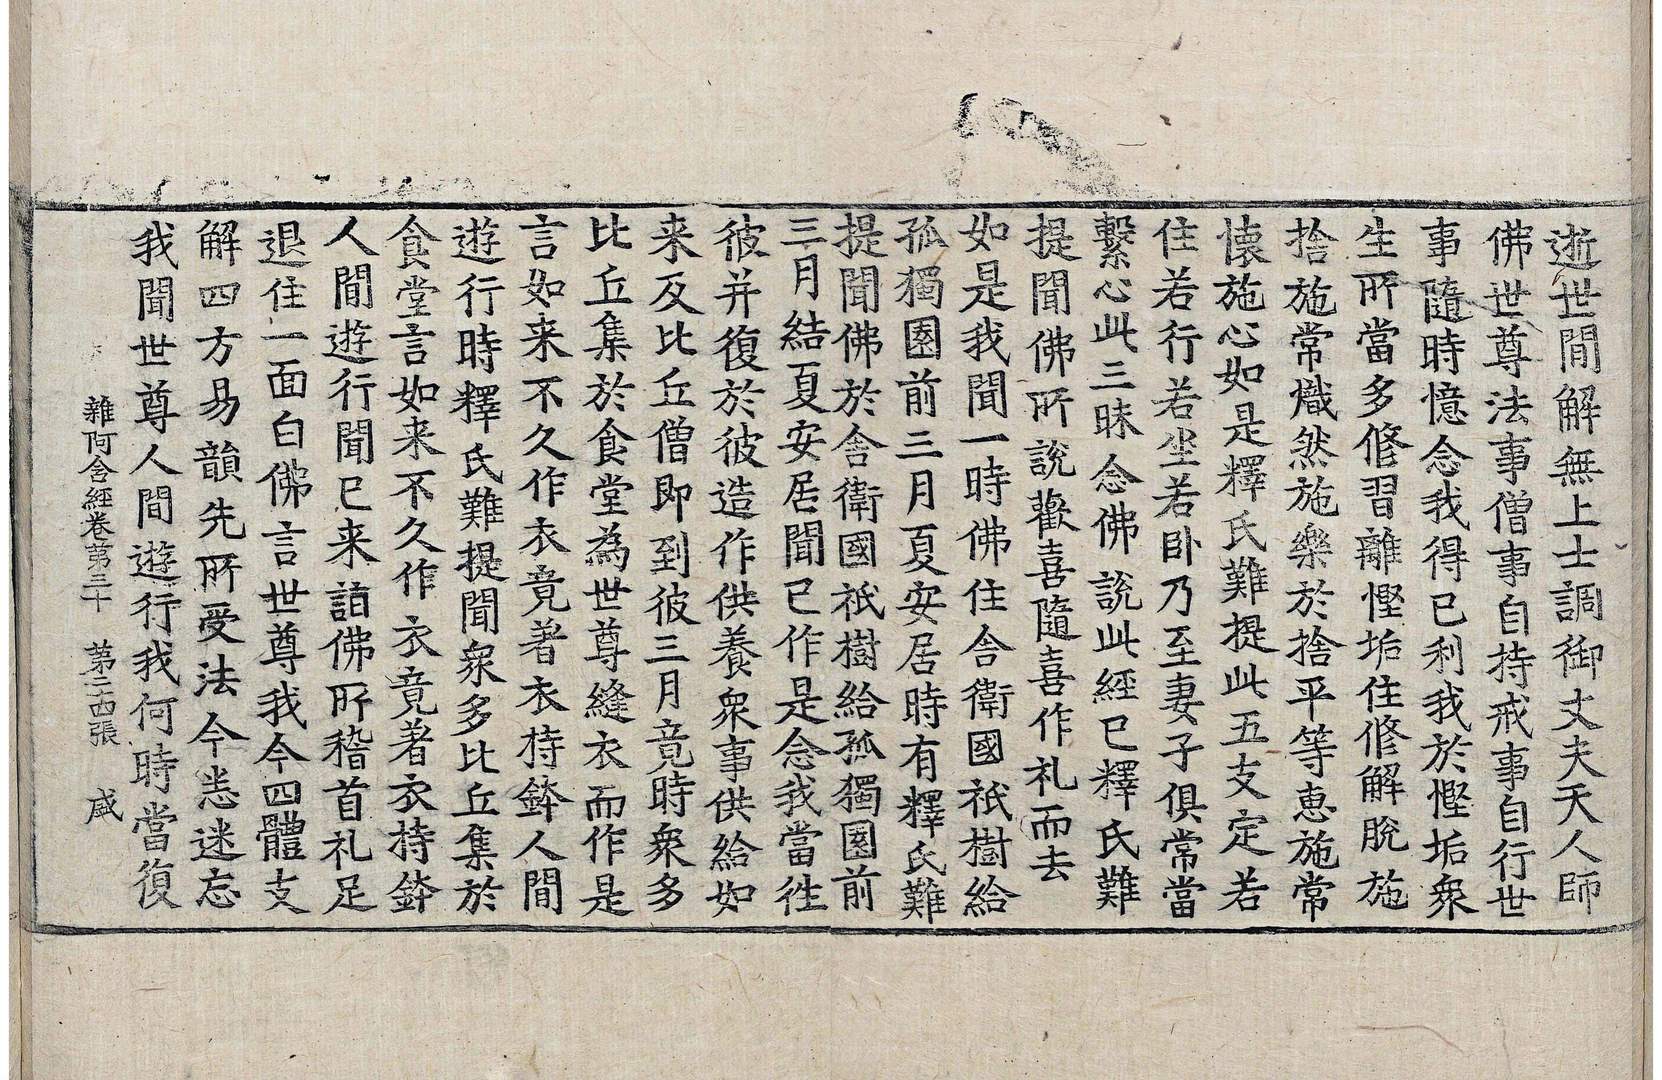 逝世閒解無上士調御丈夫天人師
佛世尊法事僧事自持戒事自行世
事隨時憶念我得已利我於慳垢衆
生所當多修習離慳垢住修解脫施
捨施常熾然施樂於捨平等惠施常
懷施心如是釋氏難提此五支定若
住若行若坐若卧乃至妻子俱常當
繫心此三昧念佛說此經已釋氏難
提聞佛所說歡喜隨喜作礼而去
如是我聞一時佛住舍衛國祇樹給
孤獨園前三月夏安居時有釋氏難
提聞佛於舍衛國祇樹給孤獨園前
三月結夏安居聞已作是念我當往
彼并復於彼造作供養衆事供給如
来及比丘僧即到彼三月竟時衆多
比丘集於食堂為世尊縫衣而作是
言如来不久作衣竟著衣持鉢人間
遊行時釋氏難提聞衆多比丘集於
食堂言如来不久作衣竟著衣持鉢
人間遊行聞已来詣佛所稽首礼足
退住一面白佛言世尊我今四體支
解四方易韻先所受法今悉迷忘
我聞世尊人間遊行我何時當復
雜阿含經卷第三十 第二十四張 盛